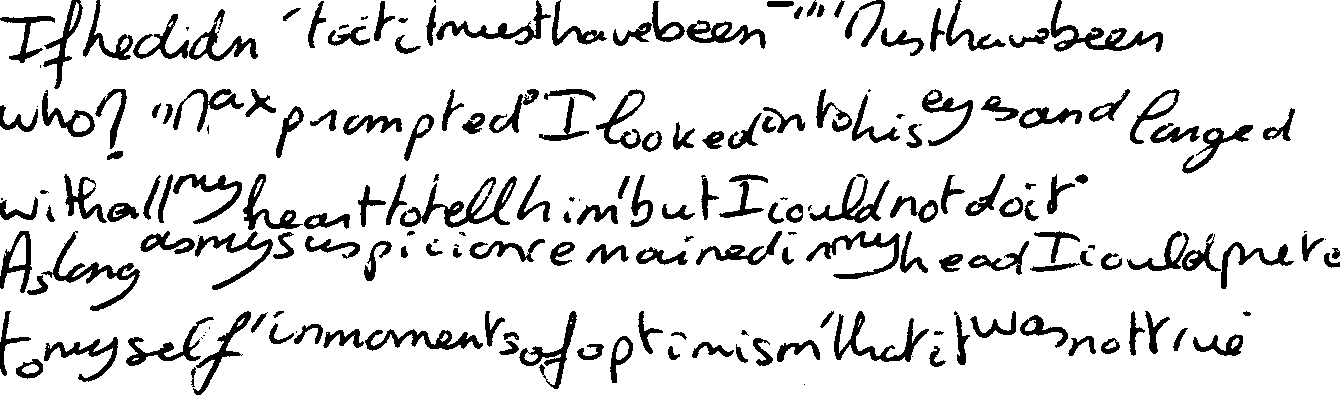 If he didn't do it, it must have been - " " Must have been
who? " Max prompted. I looked into his eyes and longed
with all my heart to tell him, but I could not do it.
As long as my suspicion remained in my head I could prete
to myself, in moments of optimism, that it was not true.